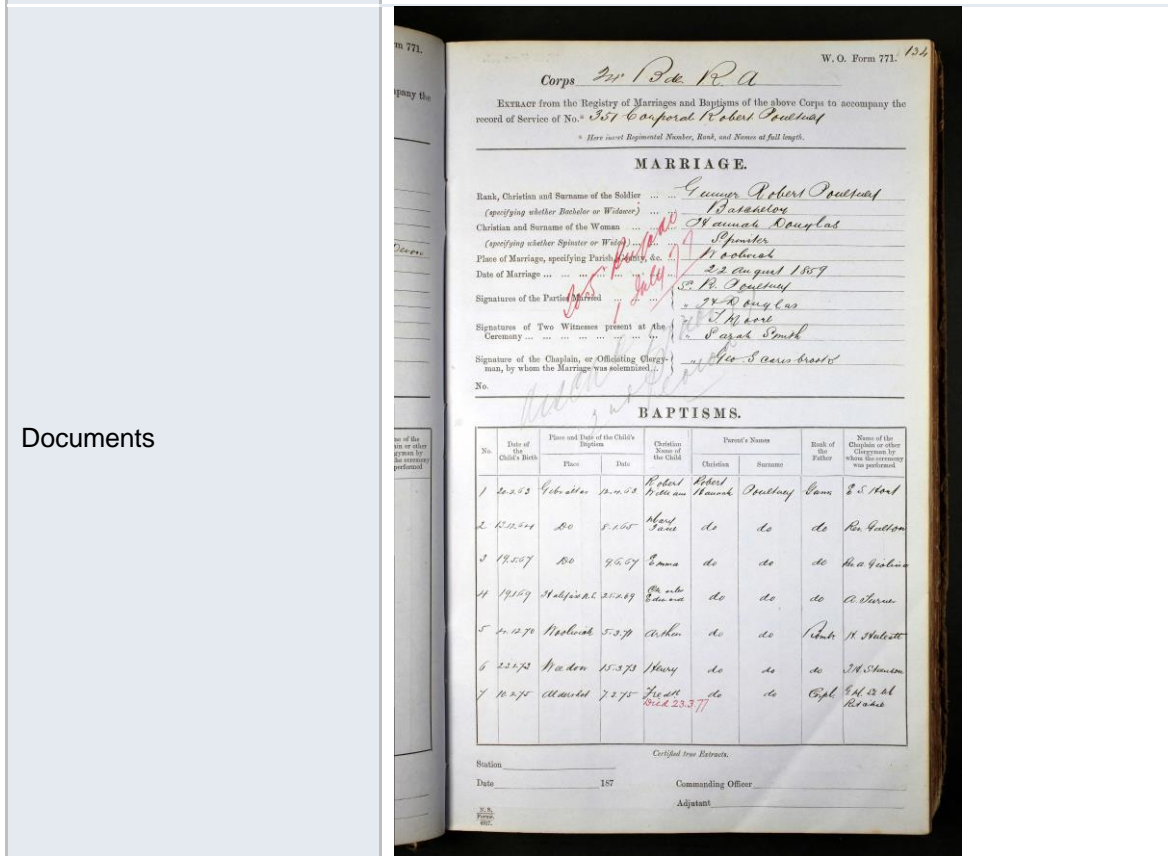 Documents
m 771.
pany the
W. O. Form 771. 134
Corps Bde R. A
EXTRACT from the Registry of Marriages and Baptisms of the above Corps to accompany the
record of Service of No.* 351 Corporal Robert Poultney
* Here insert Regimental Number, Rank, and Names at full length.
MARRIAGE.
Rank, Christian and Surname of the Soldier ... ... Gunner Robert Poultney
(specifying whether Bachelor or Widower) ... ... Batchelor
Christian and Surname of the Woman ... Hannah Douglas
(specifying whether Spinster or Widow) ... Spinster
Place of Marriage, specifying Parish, County, &c. ... Woolwich
Date of Marriage ... ... 22 August 1859
Signatures of the Parties Married ... R. Poultney
H Douglas
Signatures of Two Witnesses present at the T Moore
Ceremony ... ... Sarah Smith
Signature of the Chaplain, or Officiating Clergy- Geo Scarisbrook
man, by whom the Marriage was solemnized...
1 July 77
No.
BAPTISMS.
No. Date of the Child's Birth Place and Date of the Child's Baptism Place Date Christian Name of the Child Parent's Names Christian Surname Rank of the Father Name of the Chaplain or other Clergyman by whom the ceremony was performed
1 Gibraltar Robert William Robert Hannah Poultney Gunr
2 13.12.64 Do 8.1.65 Mary Jane do do do Rev. Galton
3 19.5.67 Do 9.6.67 Emma do do do
4 19.1.69 Halifax Charles Edward do do do A. Turner
5 Woolwich 5.3.71 Arthur do do Bombr
6 22.1.73 Weedon 15.3.73 Henry do do do
7 Aldershot Fredk do do Corpl. Ritchie
Died 23.3.77
Certified true Extracts.
Station
Date 187 Commanding Officer
Adjutant